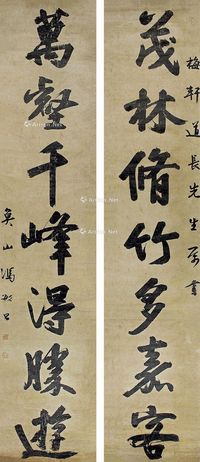 梅軒道長先生屬書
茂林脩竹多嘉客
萬壑千峰得勝遊
山馮